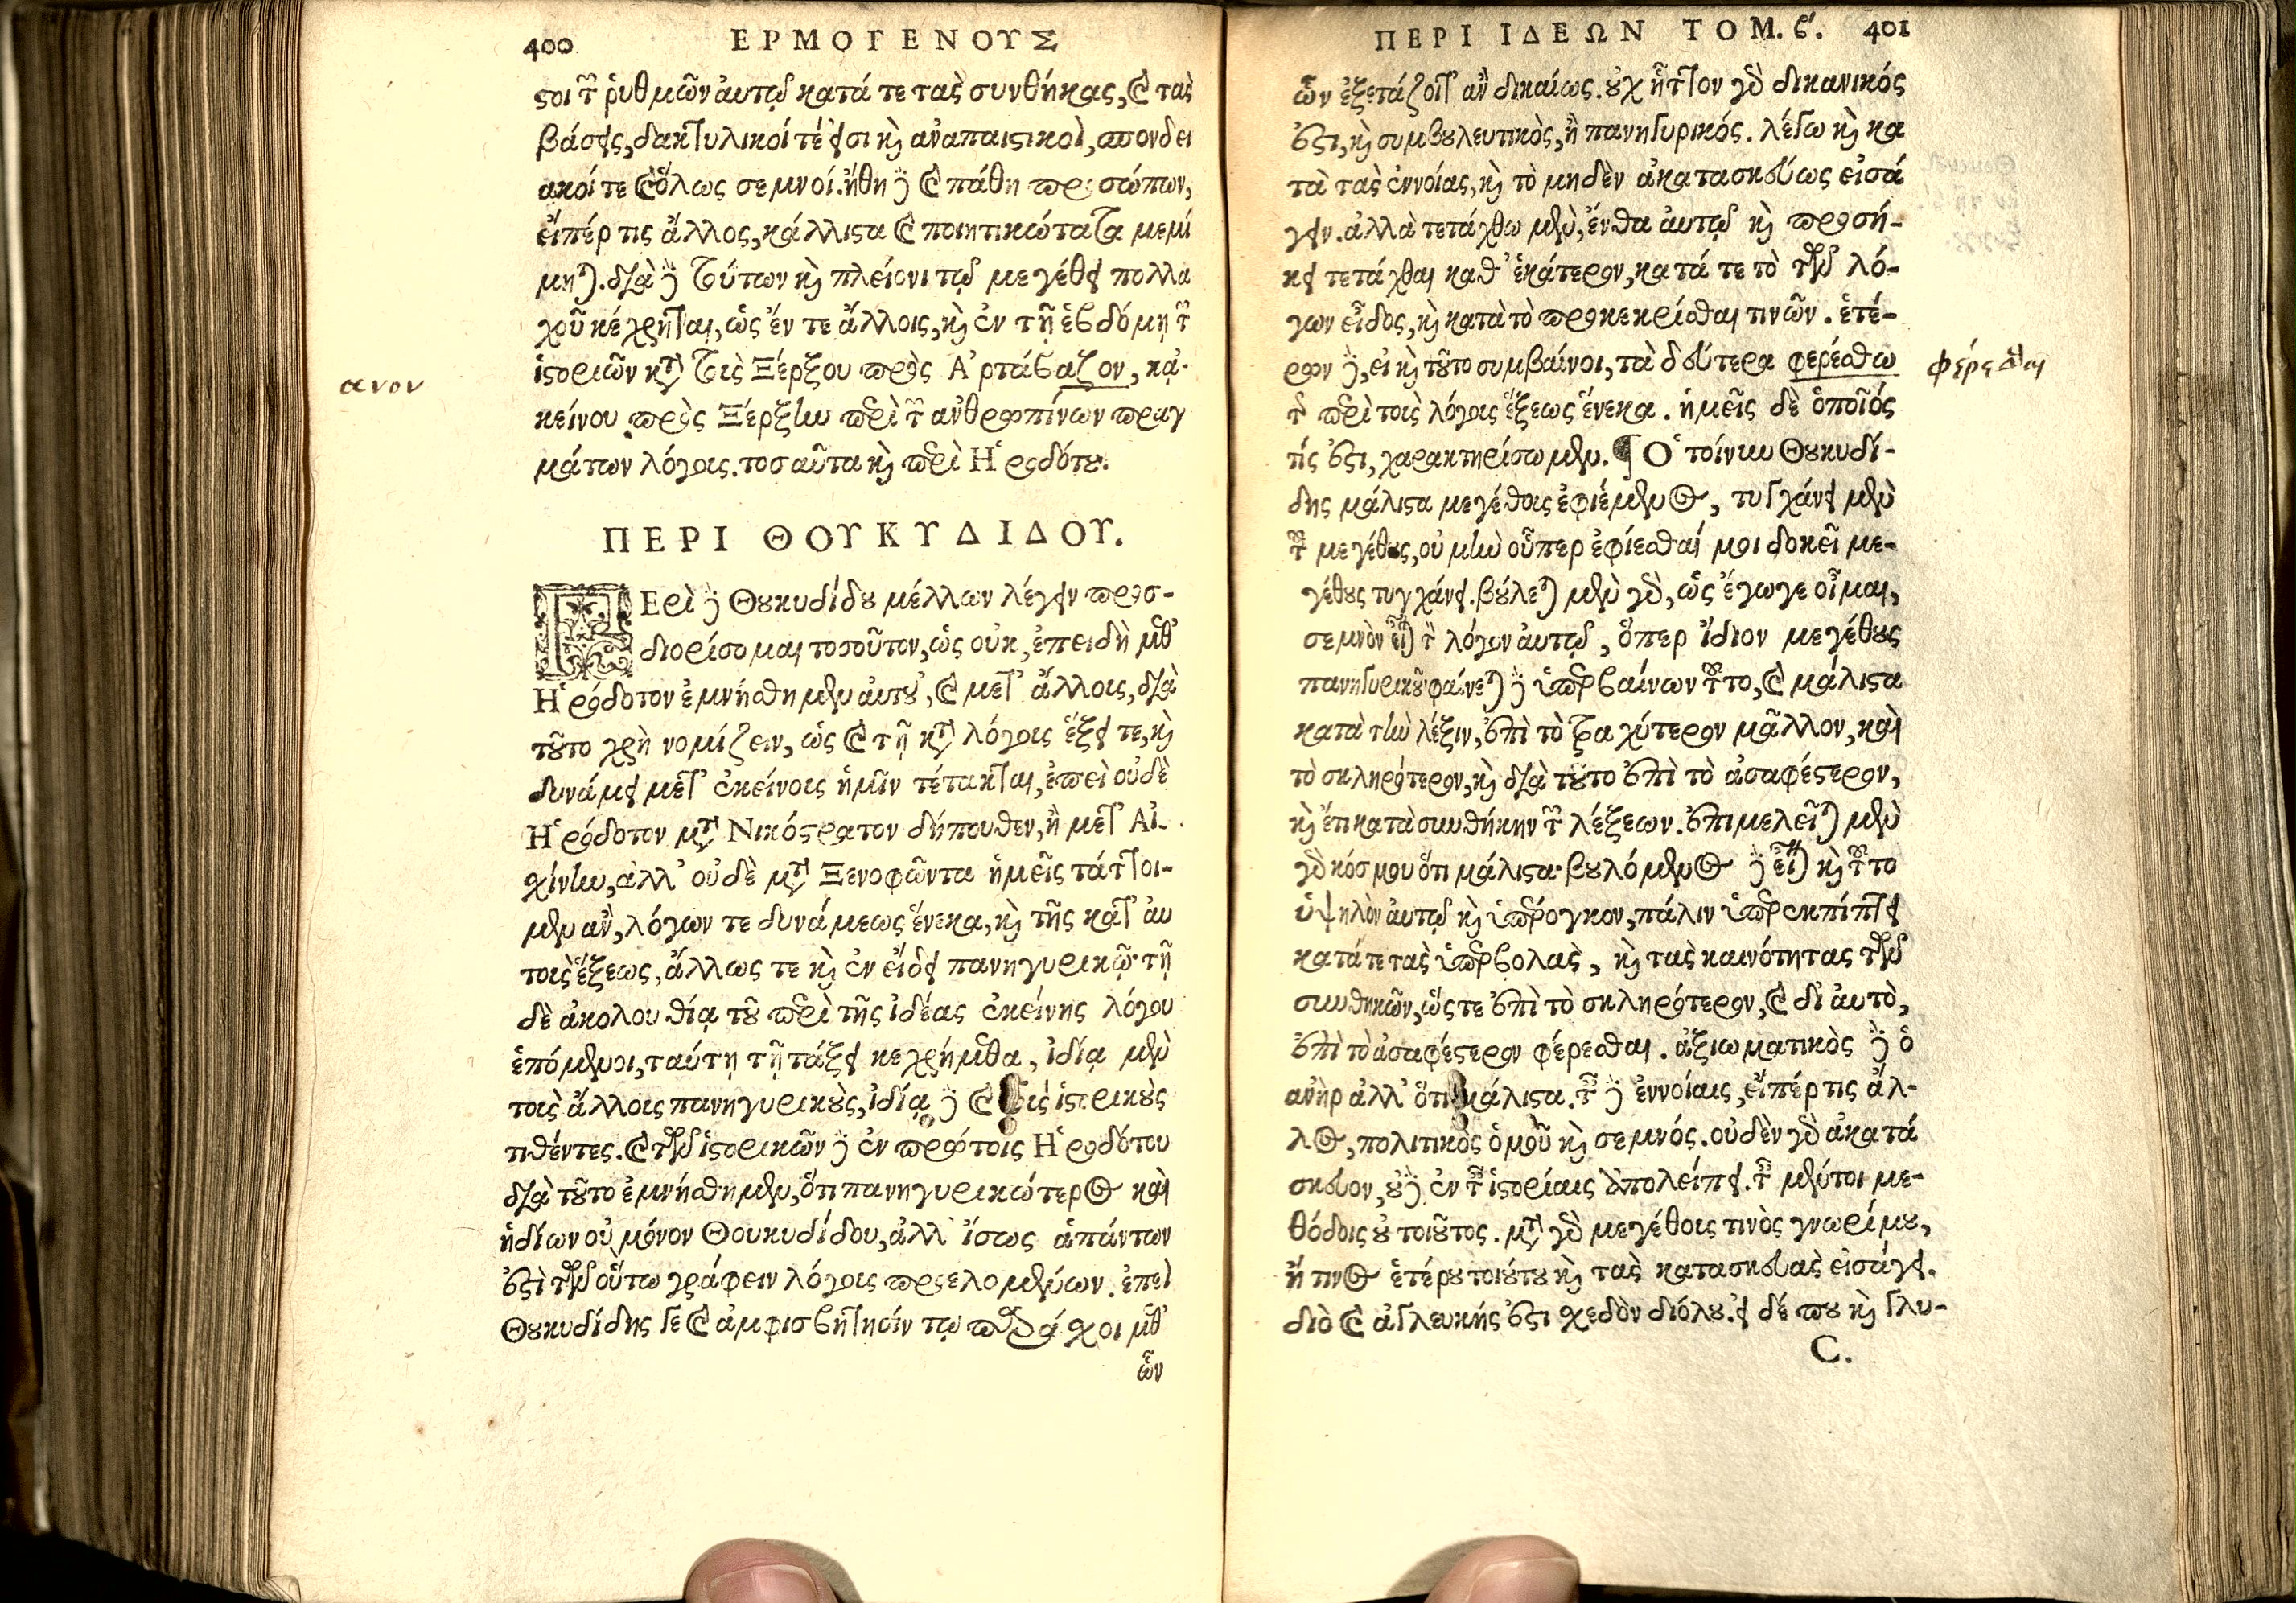 400 ΕΡΜΟΓΕΝΟΥΣ
ϛοι τῶν ῥυθμῶν ἀυτῷ κατά τε τὰς συνθήκας, καὶ τὰς
βάσεις, δακτυλικοί τέ εἰσι καὶ ἀναπαιϛικοὶ, σπονδει
ακοί τε καὶ ὅλως σεμνοί. ἤθη δὲ καὶ πάθη προσώπων,
εἴπέρ τις ἄλλος, κάλλιϛα καὶ ποιητικώτατα μεμί
μηται. διὰ δὲ τούτων καὶ πλείονι τῷ μεγέθει πολλα
χοῦ κέχρηται, ὡς ἔν τε ἄλλοις, καὶ ἐν τῇ ἑβδόμη τῶν
ἱϛοριῶν κατὰ τοὺς Ξέρξου πρὸς Ἀρτάβαζον, κα̣-
ανον
κείνου πρὸς Ξέρξην περὶ τῶν ἀνθρωπίνων πραγ
μάτων λόγοις. τοσαῦτα καὶ περὶ Ἡροδότου.
ΠΕΡΙ ΘΟΥΚΥΔΙΔΟΥ.
ΠΕρὶ δὲ Θουκυδίδου μέλλων λέγειν προσ-
διορίσομαι τοσοῦτον, ὡς οὐκ, ἐπειδὴ μεθ'
Ἡρόδοτον ἐμνήσθημεν ἀυτοῦ, καὶ μετ' ἄλλοις, διὰ
τοῦτο χρὴ νομίζειν, ὡς καὶ τῇ κατὰ λόγοις ἕξει τε, καὶ
δυνάμει μετ' ἐκείνοις ἡμῖν τέτακται, ἐπεὶ οὐδὲ
Ἡρόδοτον μετὰ Νικόϛρατον δήπουθεν, ἢ μετ' Αἰ-
σχίνην, ἀλλ' οὐδὲ μετὰ Ξενοφῶντα ἡμεῖς τάττοι-
μεν ἂν, λόγων τε δυνάμεως ἕνεκα, καὶ τῆς κατ' ἀυ
τοὺς ἕξεως, ἄλλως τε καὶ ἐν εἴδει πανηγυρικῷ. τῇ
δὲ ἀκολουθίᾳ τοῦ περὶ τῆς ἰδέας ἐκείνης λόγου
ἑπόμενοι, ταύτῃ τῇ τάξει κεχρήμεθα, ἰδίᾳ μὲν
τοὺς ἄλλοις πανηγυρικοὺς, ἰδίᾳ δὲ καὶ τοὺς ἱϛορικοὺς
τιθέντες. καὶ τῶν ἱϛορικῶν δὲ ἐν πρώτοις Ἡροδότου
διὰ τοῦτο ἐμνήσθημεν, ὅτι πανηγυρικώτερος καὶ
ἡδίων οὐ μόνον Θουκυδίδου, ἀλλ' ἴσως ἁπάντων
ἐϛὶ τῶν οὕτω γράφειν λόγοις προελομένων. ἐπεὶ
Θουκυδίδης γε καὶ ἀμφισβήτησίν τῳ παράσχοι μεθ'
ὧν
ΠΕΡΙ ΙΔΕΩΝ ΤΟΜ. ϛ'. 401
ὧν ἐξετάζοιτ' ἂν δικαίως. οὐχ ἧττον γὰρ δικανικός
ἐϛι, καὶ συμβουλευτικὸς, ἢ πανηγυρικός. λέγω καὶ κα
τὰ τὰς ἐννοίας, καὶ τὸ μηδὲν ἀκατασκεύως εἰσά
γειν. ἀλλὰ τετάχθω μὲν, ἔνθα ἀυτῷ καὶ προσή-
κει τετάχθαι καθ' ἑκάτερον, κατά τε τὸ τῶν λό-
γων εἶδος, καὶ κατὰ τὸ προκεκρίσθαι τινῶν. ἑτέ-
ρων δὲ, εἰ καὶ τοῦτο συμβαίνοι, τὰ δεύτερα φερέσθω
φέρεσθαι
τῆς περὶ τοὺς λόγοις ἕξεως ἕνεκα. ἡμεῖς δὲ ὁποῖός
τίς ἐϛι, χαρακτηρίσωμεν. ¶ Ὁ τοίνυν Θουκυδί-
δης μάλιϛα μεγέθοις ἐφιέμενος, τυγχάνει μὲν
τοῦ μεγέθους, οὐ μὴν οὗπερ ἐφίεσθαί μοι δοκεῖ με-
γέθους τυγχάνει. βούλεται μὲν γὰρ, ὡς ἔγωγε οἶμαι,
σεμνὸν εἶναι τὸν λόγον ἀυτῷ, ὅπερ ἴδιον μεγέθους
πανηγυρικοῦ. φαίνεται δὲ ὑπερβαίνων τοῦτο, καὶ μάλιϛα
κατὰ τὴν λέξιν, ἐπὶ τὸ τραχύτερον μᾶλλον, καὶ
τὸ σκληρότερον, καὶ διὰ τοῦτο ἐπὶ τὸ ἀσαφέϛερον,
καὶ ἔτι κατὰ συνθήκην τῶν λέξεων. ἐπιμελεῖται μὲν
γὰρ κόσμου ὅτι μάλιϛα. βουλόμενος δὲ εἶναι καὶ τοῦτο
ὑψηλὸν ἀυτῷ καὶ ὑπέρογκον, πάλιν ὑπερεκπίπτει
κατά τε τὰς ὑπερβολὰς, καὶ τὰς καινότητας τῶν
συνθηκῶν, ὥς τε ἐπὶ τὸ σκληρότερον, καὶ δι' ἀυτὸ,
ἐπὶ τὸ ἀσαφέϛερον φέρεσθαι. ἀξιωματικὸς δὲ ὁ
ἀνὴρ ἀλλ' ὅτι μάλιϛα. ταῖς δὲ ἐννοίαις, εἴπέρ τις ἄλ-
λος, πολιτικὸς ὁμοῦ καὶ σεμνός. οὐδὲν γὰρ ἀκατά
σκευον, οὐδὲ ἐν ταῖς ἱϛορίαις ἀπολείπει. ταῖς μέντοι με-
θόδοις οὐ τοιοῦτος. μετὰ γὰρ μεγέθοις τινὸς γνωρίμου,
ἤ τινος ἑτέρου τοιούτου καὶ τὰς κατασκευὰς εἰσάγει.
διὸ καὶ ἀγλευκής ἐϛι σχεδὸν διόλου. εἰ δέ που καὶ γλυ-
C.